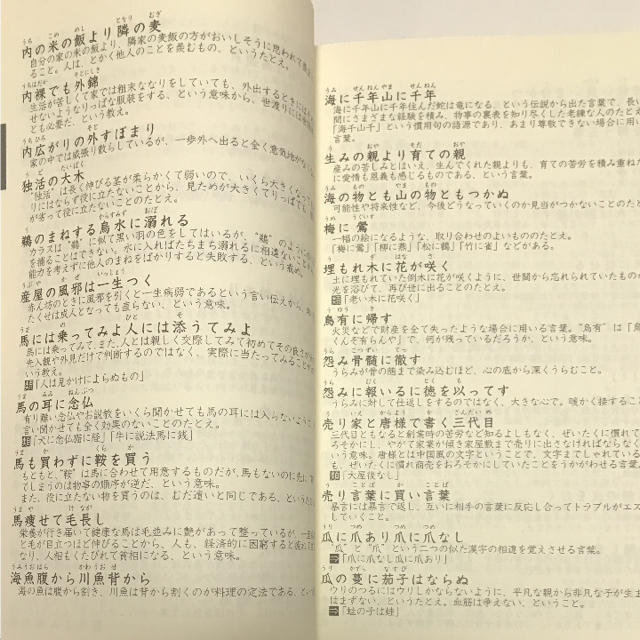 内の米の飯より隣の麦
自分の家の米の飯より、隣家の麦飯の方がおいしそうに思われて
ること。人は、とかく他人のことを羨むもの、というたとえ。
内裸でも外錦
生活が苦しくて家では粗末ななりをしていても、外出するときには
せないようなりっぱな服装をする、という意味から、世渡りには
とも必要だ、という教え。
内広がりの外すぼまり
家の中では威張り散らしているが、一歩外へ出ると全く意気地がな
独活の大木
“独活”は長く伸びる茎が柔らかくて弱いので、いくら大きくなって
りにはならず役に立たないことから、見ためが大きくてりっぱでも
が劣って役に立たないことのたとえ。
鵜のまねする烏水に溺れる
カラスは“鵜”に似て黒い羽の色をしてはいるが、“鵜”のように
を捕ることはできない。水に入ればたちまち溺れるに相違ない
能力を考えずに他人のまねをばかりすると失敗する、という戒め。
産屋の風邪は一生つく
赤ん坊のときに風邪を引くと一生病弱であるという言い伝えから、
たくせは成人となっても直らない、という意味。
馬には乗ってみよ人には添うてみよ
馬には乗って、また、人とは親しく交際してみて初めてその良さが
先入観や外見だけで判断するのではなく、実際に当たってみること
いう教え。
「人は見かけによらぬもの」
馬の耳に念仏
有り難い念仏やお説教をいくら聞かせても馬の耳には入らない
言い聞かせても全く効果のないことのたとえ。
「犬に念仏猫に経」「牛に説法馬に銭」
馬も買わずに鞍を買う
もともと、“鞍”は馬に合わせて用意するものだが、馬もないのに先に
てしまうのは物事の順序が逆だ、という意味。
また、役に立たない物を買うのは、むだ遣いと同じである、という
馬痩せて毛長し
栄養が行き届いて健康な馬は毛並みに艶があって整っているが、
と毛が目立つほど伸びることから、人も、経済的に困窮すると
なり、人相もくたびれて貧相になる、という意味。
海魚腹から川魚背から
海の魚は腹から割き、川魚は背から割くのが料理の定法である、とい
海に千年山に千年
海に千年山に千年住んだ蛇は竜になる、という伝説から出た言葉で、長い
間にさまざまな経験を積み、物事の裏表を知り尽くした老練な人のたとえ
「海千山千」という慣用句の語源であり、あまり尊敬できない場合に用い
言葉。
生みの親より育ての親
産みの苦しみとはいえ、生んでくれた親よりも、育ての苦労を積み重ね
に愛情も恩義も感じるものである、という意味。
海の物とも山の物ともつかぬ
可能性や将来性など、今後どうなっていくのか見当がつかないことのた
梅に鶯
一幅の絵になるような、取り合わせのよいもののたとえ。
「梅に鶯」「柳に燕」「松に鶴」「竹に雀」などがある。
埋もれ木に花が咲く
土に埋もれていた倒木に花が咲くように、世間から忘れられていたもの
光を浴びて、再び世に出ることのたとえ。
「老い木に花咲く」
烏有に帰す
火災などで財産を全て失ったような場合に用いる言葉。“烏有”は「烏
くんぞ有らんや」で、何が残っているだろうか、という意味。
怨み骨髄に徹す
うらみが骨の髄まで染み込むほど、心の底から深くうらむこと。
怨みに報いるに徳を以ってす
うらみに対して仕返しをするのではなく、大きな心で。暖かく接すること
売り家と唐様で書く三代目
三代目ともなると創業時の苦労など知るよしもなく、ぜいたくに慣れて
ろそかにし、やがて家業が傾き家屋敷まで売りに出さなければならなく
いう意味。唐様とは中国風の文字ということで、文字までしゃれている
も、ぜいたくに慣れ商売をおろそかにしていたことをうかがわせる言葉
「大屋後なし」
売り言葉に買い言葉
暴言には暴言で返し、互いに相手の言葉に反応し合ってトラブルがエス
していくこと。
瓜に爪あり爪に爪なし
“瓜”と“爪”という二つの似た漢字の相違を覚えさせる言葉。
「爪に爪なし瓜に爪あり」
瓜の蔓に茄子はならぬ
ウリのつるにはウリしかならないように、平凡な親から非凡な子が生ま
はまずない、というたとえ。血筋は争えない、ということ。
「蛙の子は蛙」